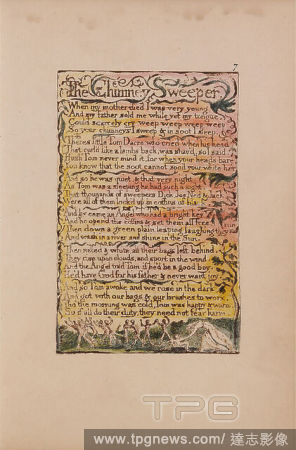 7
The Chimney Sweeper
When my mother died I was very young,
And my father sold me while yet my tongue,
Could scarcely cry weep weep weep weep.
So your chimneys I sweep & in soot I sleep.
Theres little Tom Dacre who cried when his head
That curl'd like a lambs back, was shav'd, so I said.
Hush Tom never mind it, for when your head's bare,
You know that the soot cannot spoil your white hair
And so he was quiet, & that very night,
As Tom was a sleeping he had such a sight,
That thousands of sweepers Dick, Joe, Ned & Jack
Were all of them lock'd up in coffins of black,
And by came an Angel who had a bright key
And he open'd the coffins & set them all free.
Then down a green plain leaping laughing they run
And wash in a river and shine in the Sun.
Then naked & white, all their bags left behind,
They rise upon clouds, and sport in the wind.
And the Angel told Tom if he'd be a good boy,
He'd have God for his father & never want joy.
And so Tom awoke and we rose in the dark
And got with our bags & our brushes to work.
Tho' the morning was cold, Tom was happy & warm,
So if all do their duty, they need not fear harm.
TPG
www.tpgnews.com/ 達志影像